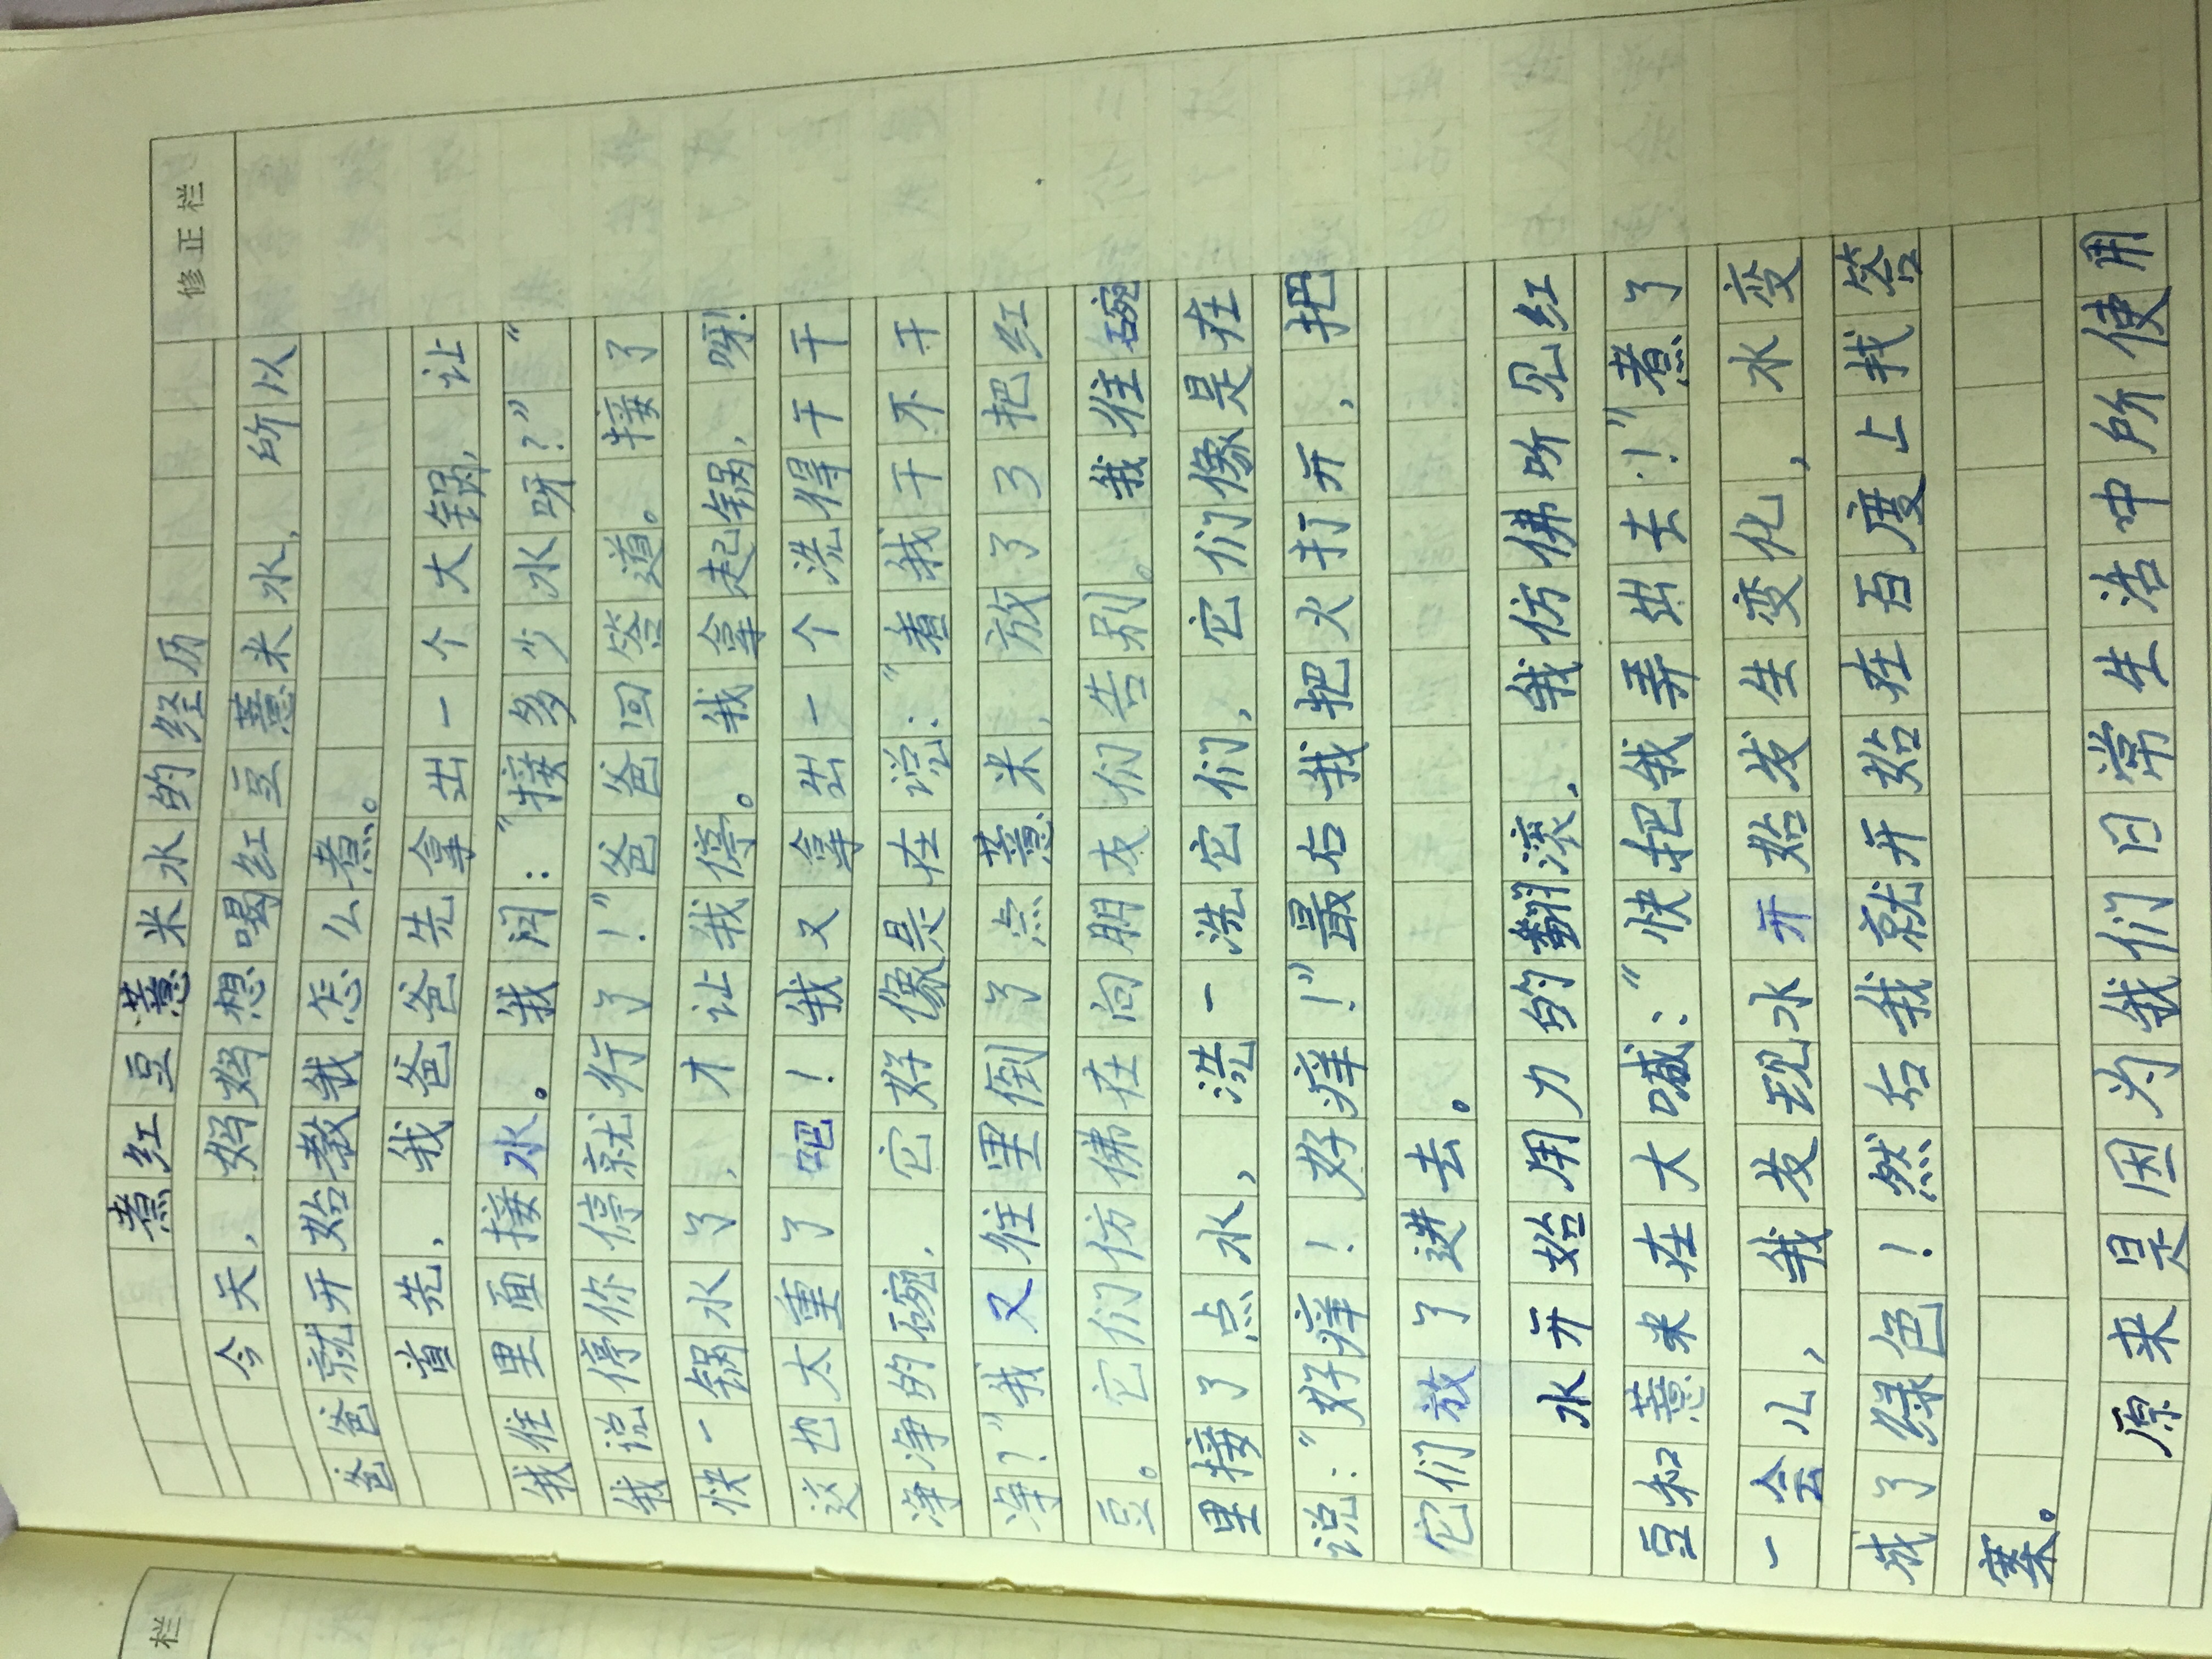 修正栏
煮红豆薏米水的经历
今天，妈妈想喝红豆薏米水，所以
爸爸就开始教我怎么煮。
首先，我爸爸先拿出一个大锅，让
我往里面接水。我问：“接多少水呀？”“
我说停你停就行了！”爸爸回答道。接了
快一锅水了，才让我停。我拿起锅，呀！
这也太重了吧！我又拿出一个洗得干干
净净的碗，它好像是在说：“看我干不干
净？”我又往里倒了点薏米，放了3把红
豆。它们仿佛在向朋友们告别。我往碗
里接了点水，洗一洗它们，它们像是在
说：“好痒！好痒！”最后我把火打开，把
它们放了进去。
水开始用力的翻滚，我仿佛听见红
豆和薏米在大喊：“快把我弄出去！”煮了
一会儿，我发现水开始发生变化，水变
成了绿色！然后我就开始在百度上找答
案。
原来是因为我们日常生活中所使用
栏